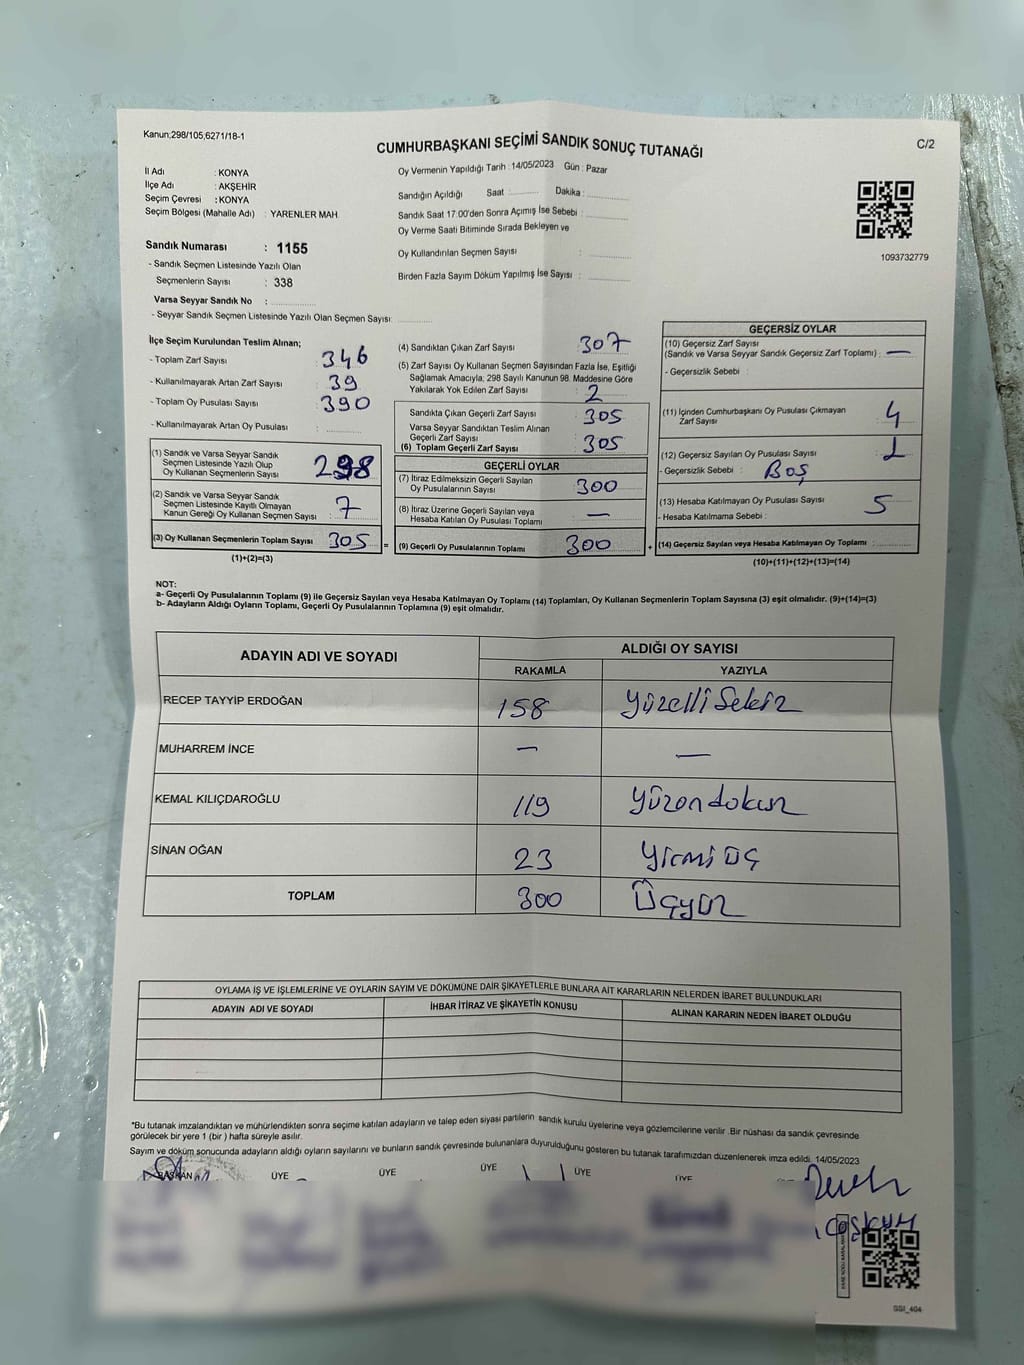 Kanun;298/105,6271/18-1
CUMHURBAŞKANI SEÇİMİ SANDIK SONUÇ TUTANAĞI
C/2
İl Adı : KONYA
İlçe Adı : AKŞEHİR
Seçim Çevresi : KONYA
Seçim Bölgesi (Mahalle Adı) : YARENLER MAH.
Sandık Numarası : 1155
- Sandık Seçmen Listesinde Yazılı Olan
Seçmenlerin Sayısı : 338
Varsa Seyyar Sandık No :
- Seyyar Sandık Seçmen Listesinde Yazılı Olan Seçmen Sayısı:
Oy Vermenin Yapıldığı Tarih : 14/05/2023 Gün : Pazar
Sandığın Açıldığı Saat : Dakika :
Sandık Saat 17:00'den Sonra Açımış İse Sebebi :
Oy Verme Saati Bitiminde Sırada Bekleyen ve
Oy Kullandırılan Seçmen Sayısı :
Birden Fazla Sayım Döküm Yapılmış İse Sayısı :
1093732779
İlçe Seçim Kurulundan Teslim Alınan;
- Toplam Zarf Sayısı : 346
- Kullanılmayarak Artan Zarf Sayısı : 39
- Toplam Oy Pusulası Sayısı : 390
- Kullanılmayarak Artan Oy Pusulası :
(1) Sandık ve Varsa Seyyar Sandık
Seçmen Listesinde Yazılı Olup
Oy Kullanan Seçmenlerin Sayısı : 298
(2) Sandık ve Varsa Seyyar Sandık
Seçmen Listesinde Kayıtlı Olmayan
Kanun Gereği Oy Kullanan Seçmen Sayısı : 7
(3) Oy Kullanan Seçmenlerin Toplam Sayısı : 305 =
(1)+(2)=(3)
(4) Sandıktan Çıkan Zarf Sayısı : 307
(5) Zarf Sayısı Oy Kullanan Seçmen Sayısından Fazla İse, Eşitliği
Sağlamak Amacıyla; 298 Sayılı Kanunun 98. Maddesine Göre
Yakılarak Yok Edilen Zarf Sayısı : 2
Sandıkta Çıkan Geçerli Zarf Sayısı : 305
Varsa Seyyar Sandıktan Teslim Alınan
Geçerli Zarf Sayısı :
(6) Toplam Geçerli Zarf Sayısı : 305
GEÇERLİ OYLAR
(7) İtiraz Edilmeksizin Geçerli Sayılan
Oy Pusulalarının Sayısı : 300
(8) İtiraz Üzerine Geçerli Sayılan veya
Hesaba Katılan Oy Pusulası Toplamı : —
(9) Geçerli Oy Pusulalarının Toplamı : 300 +
GEÇERSİZ OYLAR
(10) Geçersiz Zarf Sayısı
(Sandık ve Varsa Seyyar Sandık Geçersiz Zarf Toplamı) : —
- Geçersizlik Sebebi :
(11) İçinden Cumhurbaşkanı Oy Pusulası Çıkmayan
Zarf Sayısı : 4
(12) Geçersiz Sayılan Oy Pusulası Sayısı : 1
- Geçersizlik Sebebi : BOŞ
(13) Hesaba Katılmayan Oy Pusulası Sayısı : 5
- Hesaba Katılmama Sebebi :
(14) Geçersiz Sayılan veya Hesaba Katılmayan Oy Toplamı :
(10)+(11)+(12)+(13)=(14)
NOT:
a- Geçerli Oy Pusulalarının Toplamı (9) ile Geçersiz Sayılan veya Hesaba Katılmayan Oy Toplamı (14) Toplamları, Oy Kullanan Seçmenlerin Toplam Sayısına (3) eşit olmalıdır. (9)+(14)=(3)
b- Adayların Aldığı Oyların Toplamı, Geçerli Oy Pusulalarının Toplamına (9) eşit olmalıdır.
ADAYIN ADI VE SOYADI
ALDIĞI OY SAYISI
RAKAMLA YAZIYLA
RECEP TAYYİP ERDOĞAN 158 yüzelli sekiz
MUHARREM İNCE — —
KEMAL KILIÇDAROĞLU 119 yüzon dokuz
SİNAN OĞAN 23 yirmi üç
TOPLAM 300 üçyüz
OYLAMA İŞ VE İŞLEMLERİNE VE OYLARIN SAYIM VE DÖKÜMÜNE DAİR ŞİKAYETLERLE BUNLARA AİT KARARLARIN NELERDEN İBARET BULUNDUKLARI
ADAYIN ADI VE SOYADI İHBAR İTİRAZ VE ŞİKAYETİN KONUSU ALINAN KARARIN NEDEN İBARET OLDUĞU
*Bu tutanak imzalandıktan ve mühürlendikten sonra seçime katılan adayların ve talep eden siyasi partilerin sandık kurulu üyelerine veya gözlemcilerine verilir .Bir nüshası da sandık çevresinde
görülecek bir yere 1 (bir ) hafta süreyle asılır.
Sayım ve döküm sonucunda adayların aldığı oyların sayılarını ve bunların sandık çevresinde bulunanlara duyurulduğunu gösteren bu tutanak tarafımızdan düzenlenerek imza edildi. 14/05/2023
BAŞKAN ÜYE ÜYE ÜYE ÜYE ÜYE
COŞKUN
SSI_404